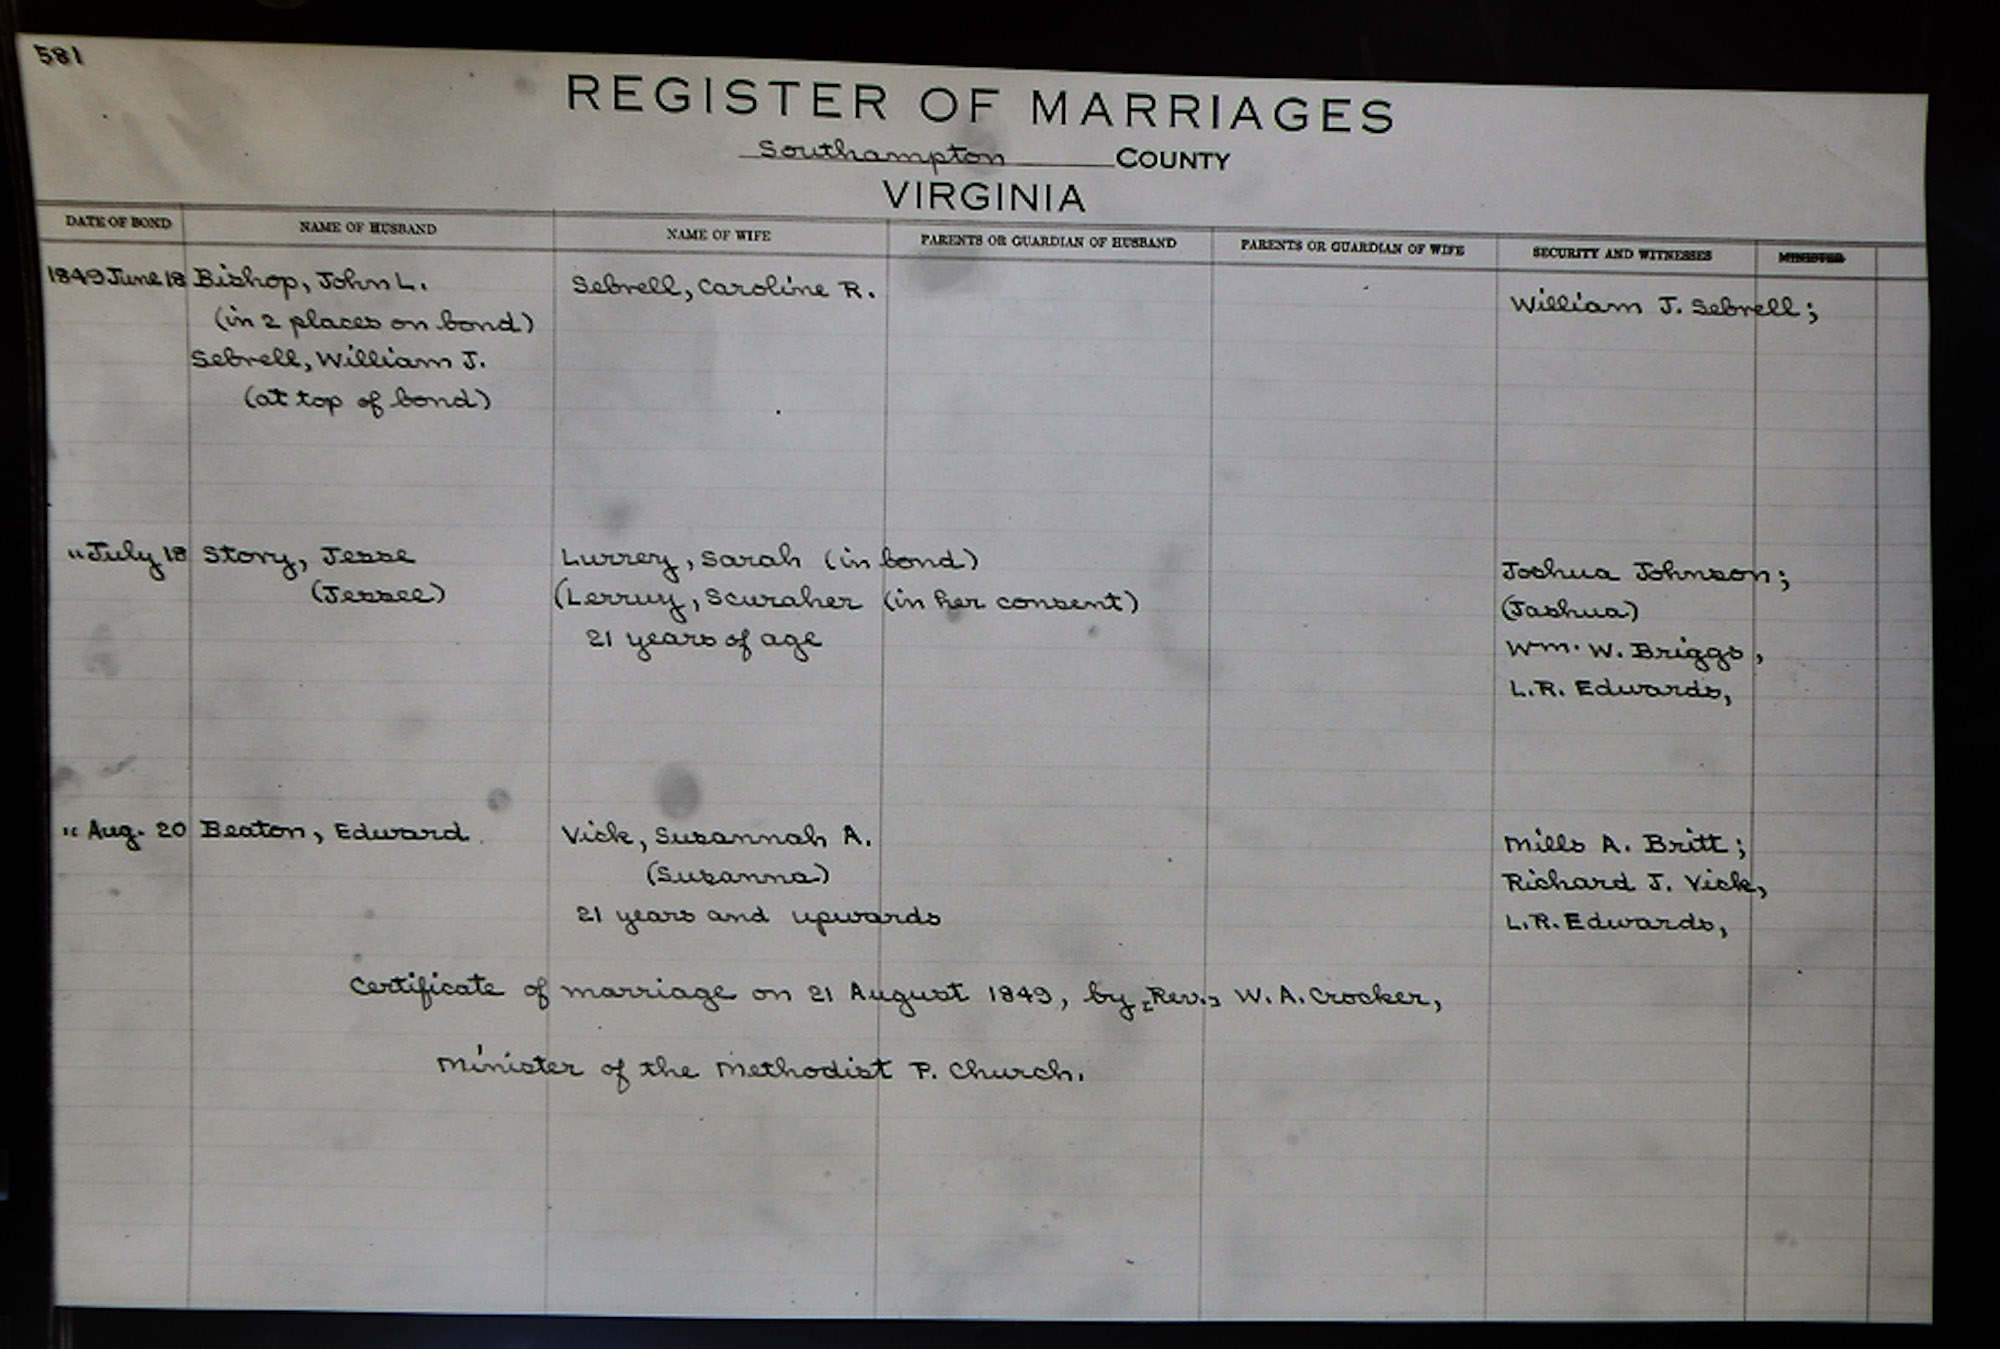 581
REGISTER OF MARRIAGES
Southampton COUNTY
VIRGINIA
DATE OF BOND NAME OF HUSBAND NAME OF WIFE PARENTS OR GUARDIAN OF HUSBAND PARENTS OR GUARDIAN OF WIFE SECURITY AND WITNESSES MINISTER
1849 June 18 Bishop, John L. Sebrell, Caroline R. William J. Sebrell;
(in 2 places on bond)
Sebrell, William J.
(at top of bond)
" July 18 Story, Jesse Lurrey, Sarah (in bond) Joshua Johnson;
(Jessee) (Lerruy, Scuraher (in her consent) (Jashua)
21 years of age Wm. W. Briggs,
L.R. Edwards,
" Aug. 20 Beaton, Edward Vick, Susannah A. Mills A. Britt;
(Susanna) Richard J. Vick,
21 years and upwards L.R. Edwards,
Certificate of marriage on 21 August 1849, by [Rev.] W. A. Crocker,
Minister of the Methodist P. Church.